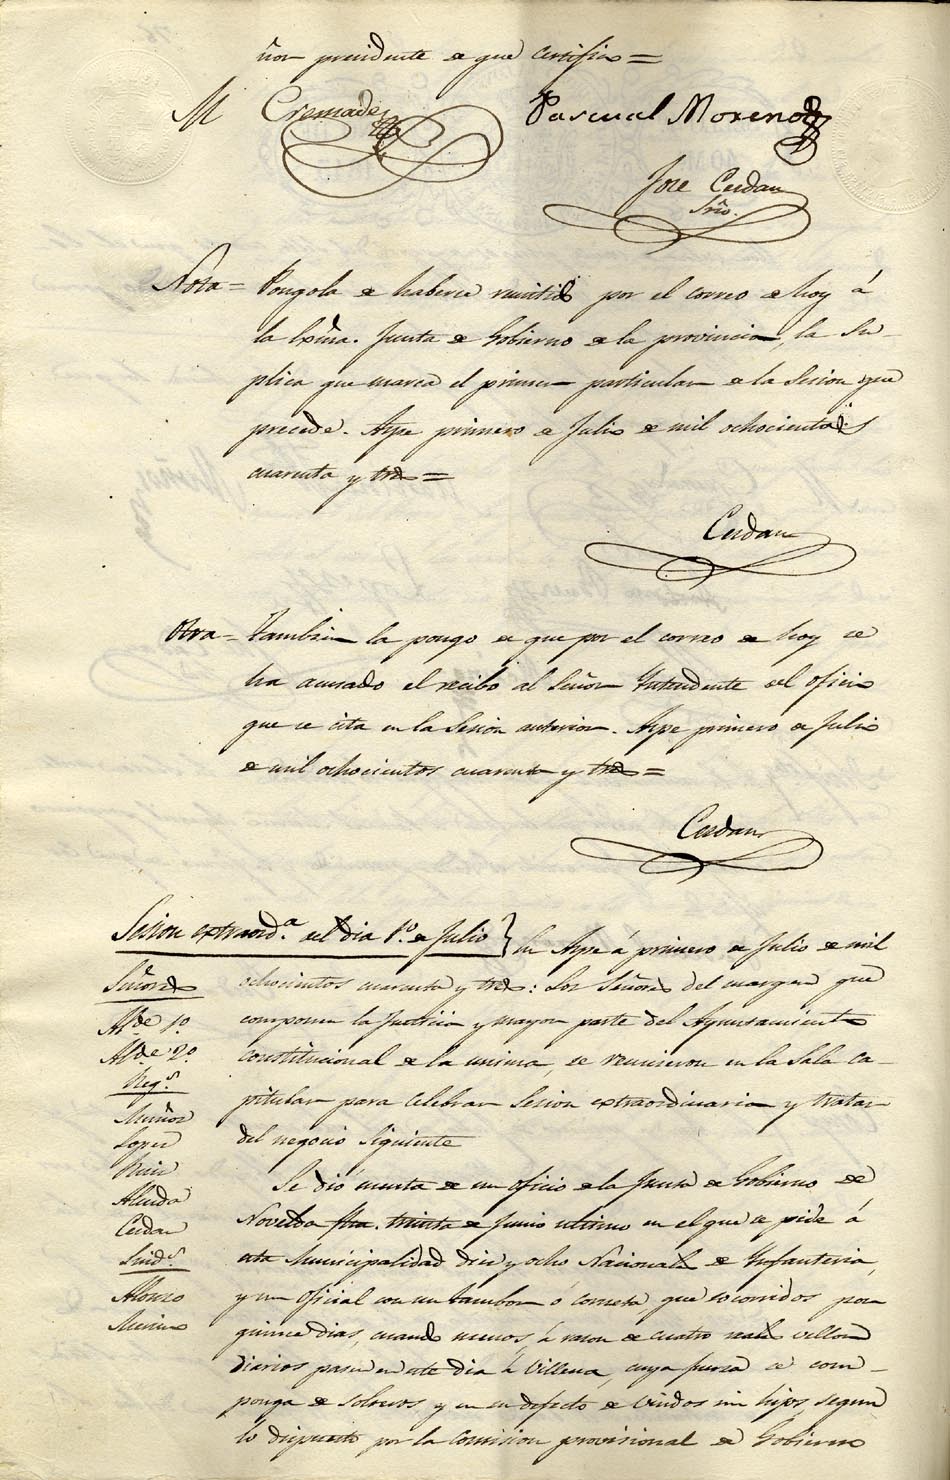 ñor presidente de que certifico =
M Cremades
Pascual Moreno
Jose Cerdan
Srio.
Nota = Pongola de haberse remitido por el correo de hoy á
la Exma. Junta de Gobierno de la provincia, la Su-
plica que marca el primer particular de la Sesion que
precede. Aspe primero de Julio de mil ochocientos
cuarenta y tres =
Cerdan
Otra = Tambien la pongo de que por el correo de hoy se
ha acusado el recibo al Señor Intendente del oficio
que se cita en la Sesion anterior. Aspe primero de Julio
de mil ochocientos cuarenta y tres =
Cerdan
Sesion extraord.ª del dia 1.º de Julio } En Aspe á primero de Julio de mil
Señores
ochocientos cuarenta y tres: Los Señores del margen que
Al.de 1.º
componen la Justicia y mayor parte del Ayuntamiento
Al.de 2.º
constitucional de la misma, se reunieron en la Sala ca-
Reg.s
pitular para celebrar Sesion extraordinaria y tratar
Muñoz
del negocio siguiente
Lopez
Ruiz
Se dió cuenta de un oficio de la Junta de Gobierno de
Almida
Novelda fha. treinta de Junio ultimo en el que se pide á
Cerdan
esta Municipalidad diez y ocho Nacionales de Infanteria,
Sind.s
y un oficial con un tambor ó corneta, que socorridos por
Alonso
quince dias, cuando menos, á razon de cuatro reales vellon
Merino
diarios pasen en este dia á Villena, cuya fuerza se com-
ponga de solteros y en su defecto de viudos sin hijos, segun
lo dispuesto por la Comision provisional de Gobierno